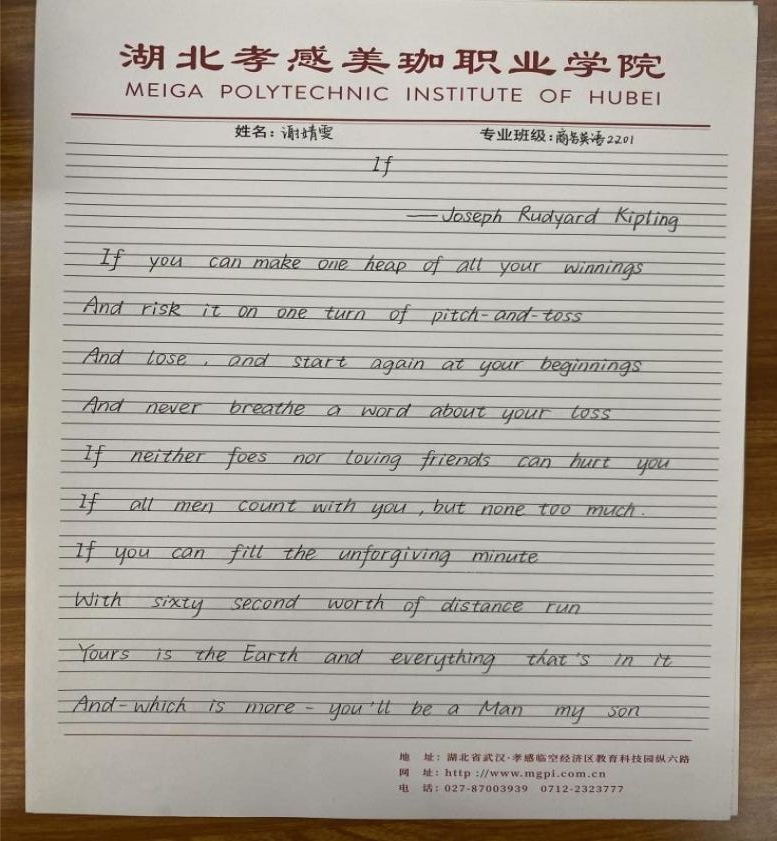 湖北孝感美珈职业学院
MEIGA POLYTECHNIC INSTITUTE OF HUBEI
姓名：谢婧雯 专业班级：商务英语2201
If
——Joseph Rudyard Kipling
If you can make one heap of all your winnings
And risk it on one turn of pitch-and-toss
And lose , and start again at your beginnings
And never breathe a word about your loss
If neither foes nor loving friends can hurt you
If all men count with you , but none too much .
If you can fill the unforgiving minute
With sixty second worth of distance run
Yours is the Earth and everything that's in it
And-which is more - you'll be a Man my son
地 址：湖北省武汉·孝感临空经济区教育科技园纵六路
网 址：http ://www.mgpi.com.cn
电 话：027-87003939 0712-2323777